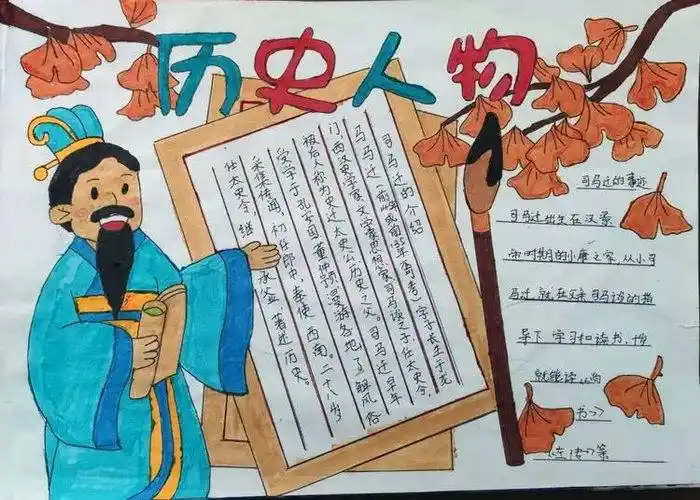 历史人物
司马迁的介绍
司马迁(前145或前135年-不可考)字子长生于龙
门,西汉史学家文学家思想家司马谈之子任太史令,
被后人称为史迁太史公历史之父。司马迁早年
受学于孔安国董仲舒漫游各地,了解风俗
采集传闻,初任郎中,奉使西南。二十八岁
任太史令,继承父业著述历史。
司马迁的事迹
司马迁出生在汉景
帝时期的小康之家,从小司
马迁就在父亲司马谈的指
导下学习和读书,
就能读
书>>
左传>>等